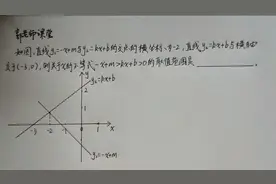 郭老师课堂
如图,直线y₁=-x+m与y₂=kx+b的交点的横坐标为-2,直线y₂=kx+b与x轴交
点为(-3,0),则关于x的不等式-x+m>kx+b>0的取值范围是
y
y₂=kx+b
2
1
-3 -2 -1 0 1 x
y₁=-x+m